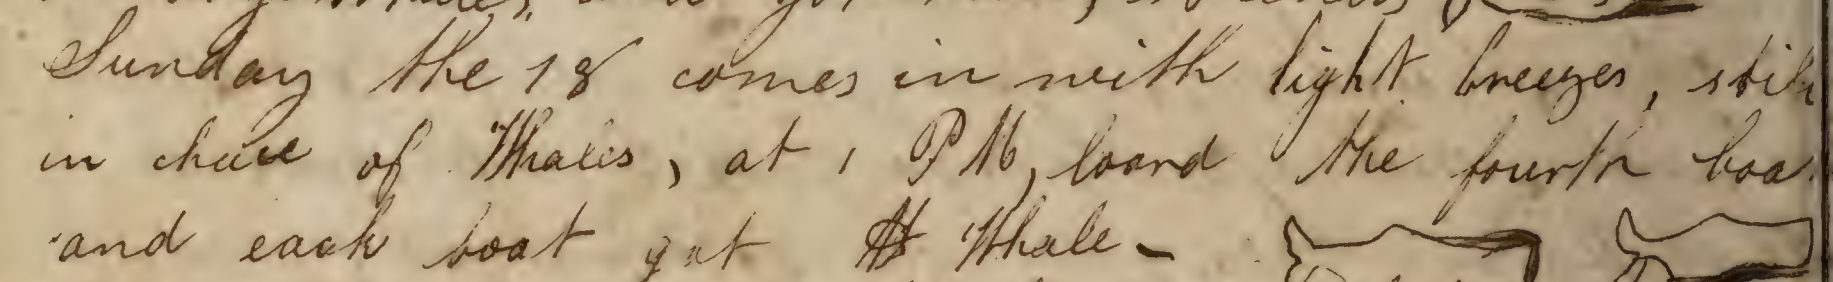 Sunday the 18 comes in with light breezes, still
in chase of Whales, at 1 PM, loard the fourth boa
and each boat got A Whale -